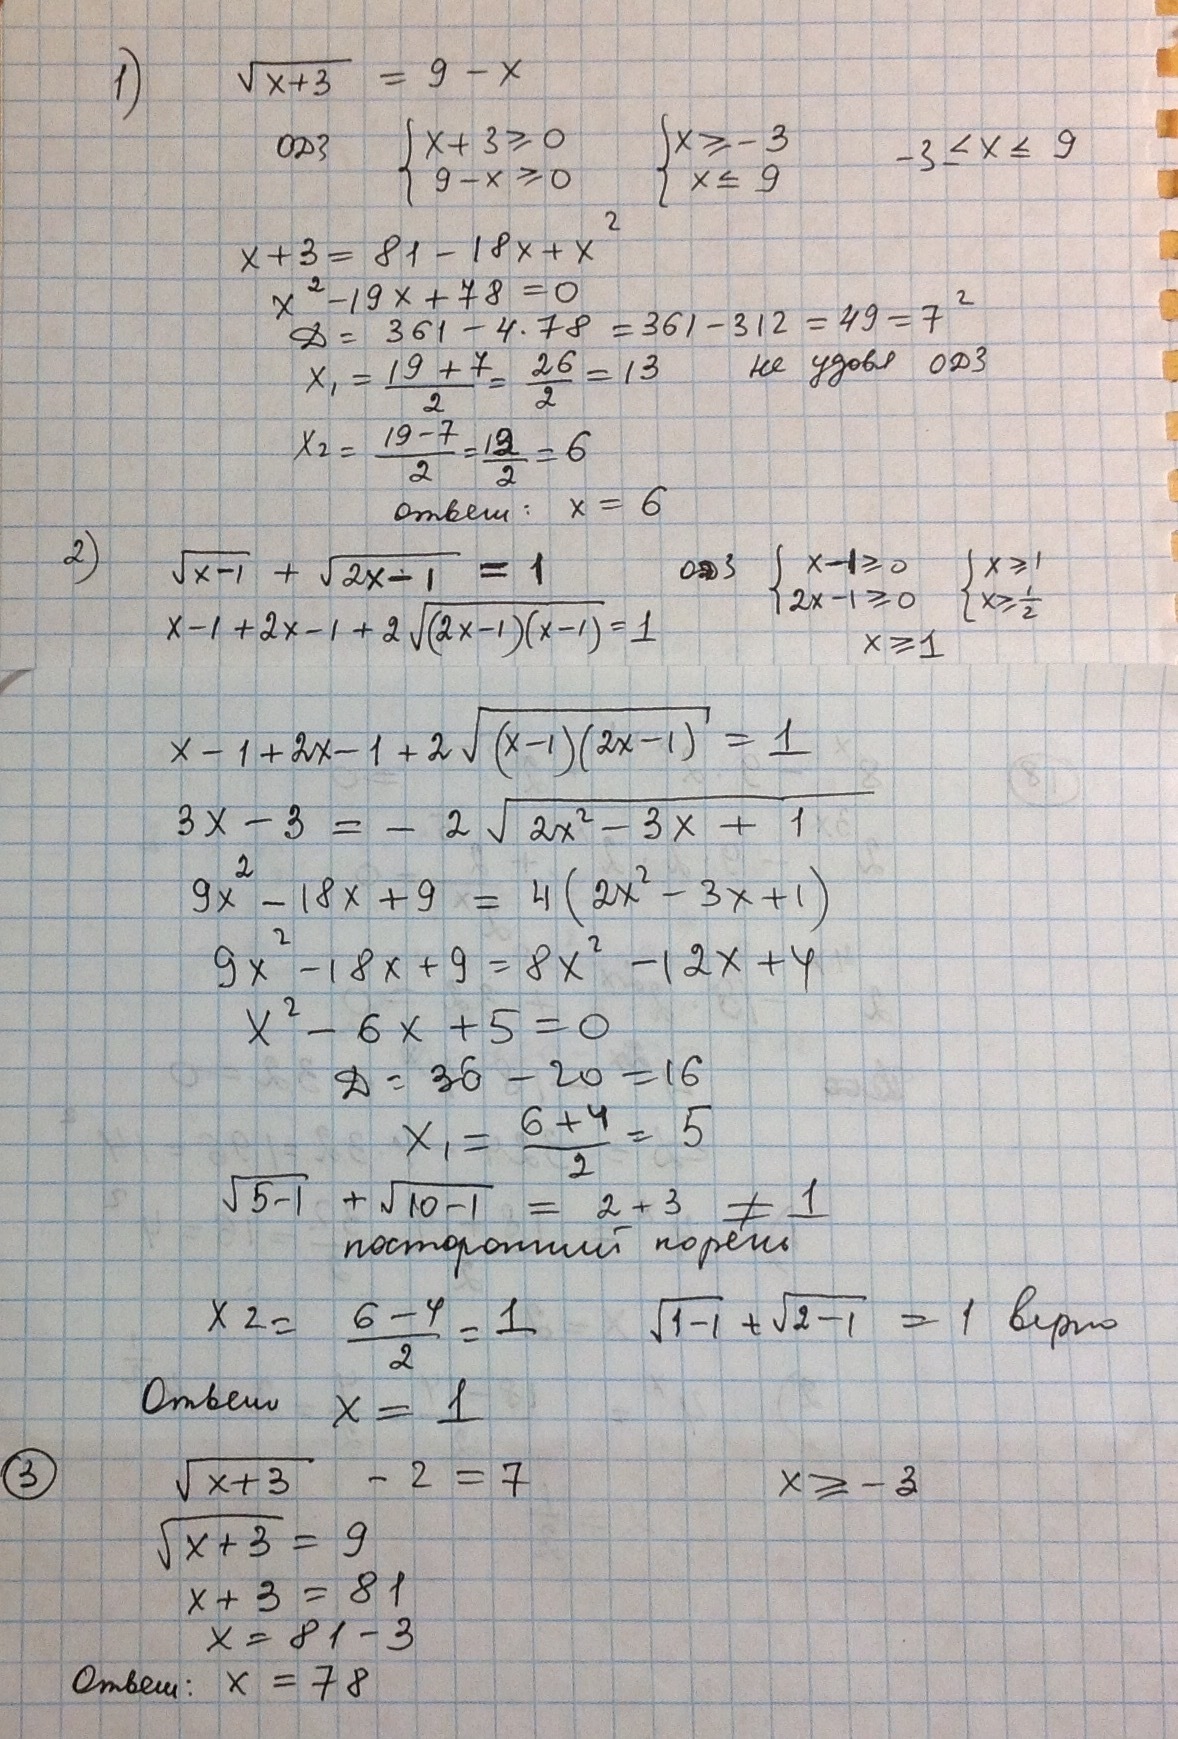 1) √(x+3) = 9 - x
ОДЗ { x+3 ≥ 0 { x ≥ -3 -3 ≤ x ≤ 9
9-x ≥ 0 x ≤ 9
x+3 = 81 - 18x + x²
x² - 19x + 78 = 0
Д = 361 - 4·78 = 361 - 312 = 49 = 7²
x₁ = (19+7)/2 = 26/2 = 13 не удовл ОДЗ
x₂ = (19-7)/2 = 12/2 = 6
ответ: x = 6
2) √(x-1) + √(2x-1) = 1 ОДЗ { x-1 ≥ 0 { x ≥ 1
2x-1 ≥ 0 x ≥ 1/2
x-1+2x-1+2√((2x-1)(x-1)) = 1 x ≥ 1
x-1+2x-1+2√((x-1)(2x-1)) = 1
3x - 3 = - 2√(2x² - 3x + 1)
9x² - 18x + 9 = 4(2x² - 3x + 1)
9x² - 18x + 9 = 8x² - 12x + 4
x² - 6x + 5 = 0
Д = 36 - 20 = 16
x₁ = (6+4)/2 = 5
√(5-1) + √(10-1) = 2 + 3 ≠ 1
посторонний корень
x₂ = (6-4)/2 = 1 √(1-1) + √(2-1) = 1 верно
Ответ x = 1
3 √(x+3) - 2 = 7 x ≥ -3
√(x+3) = 9
x + 3 = 81
x = 81 - 3
Ответ: x = 78